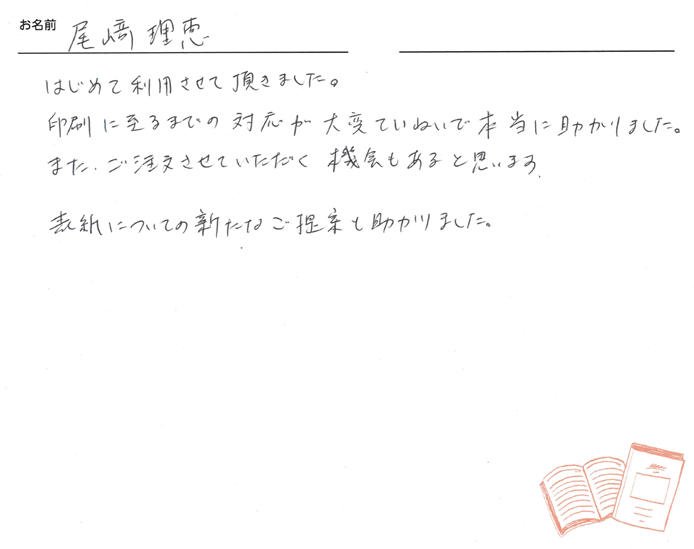 お名前 尾﨑 理恵
はじめて利用させて頂きました。
印刷に至るまでの対応が大変ていねいで本当に助かりました。
また、ご注文させていただく機会もあると思います。
表紙についての新たなご提案も助かりました。